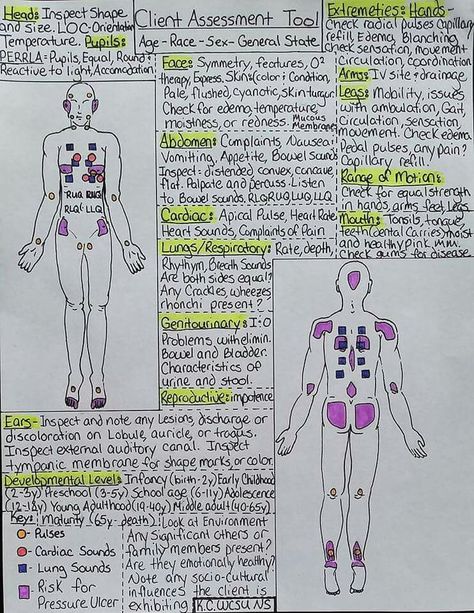 Head: Inspect Shape
and Size. L.O.C. Orientation
Temperature. Pupils:
PERRLA- Pupils, Equal, Round
Reactive to light, Accomodation
Client Assessment Tool
Age - Race - Sex - General State
Face: Symmetry, features, O²
therapy, Express. Skin: (color & Condition,
Pale, flushed, Cyanotic, Skin turgur.
Check for edema, temperature,
moistness, or redness. Mucous
Membranes
Abdomen: Complaints, Nausea &
Vomitting, Appetite, Bowel Sounds
Inspect: distended convex, concave,
flat. Palpate and percuss. Listen
to Bowel sounds. RLQ RUQ LUQ LLQ
Cardiac: Apical Pulse, Heart Rate
Heart Sounds, Complaints of Pain
Lungs/Respiratory: Rate, depth,
Rhythm, Breath Sounds
Are both sides equal?
Any Crackles, wheezes,
rhonchi present?
Genitourinary: I&O
Problems with elimin.
Bowel and Bladder.
Characteristics of
urine and stool.
Reproductive: impotence
Extremeties: Hands-
Check radial pulses Capillary
refill, Edema, Blanching,
Check sensation, movement
Circulation, coordination
Arms: IV site & drainage.
Legs: Mobility, issues
with ambulation, Gait
Circulation, sensation,
movement. Check edema.
Pedal pulses, any pain?
Capillary refill?
Range of Motion:
Check for equal strength
in hands, arms, feet, Legs
Mouth: Tonsils, tongue,
teeth (dental Carries) moist
and healthy pink, m.m.
Check gums for disease.
RUQ
RLQ LLQ
Ears- Inspect and note any Lesions, discharge or
discoloration on Lobule, auricle, or tragus.
Inspect external auditory canal. Inspect
tympanic membrane for shape marks, or color.
Developmental Level: Infancy (birth-2y) Early Childhood
(2-3y) Preschool (3-5y) School age (6-11y) Adolescence
(12-18y) Young Adulthood (19-40y) Middle adult (40-65y)
Maturity (65y-death)
Key:
Pulses
Cardiac Sounds
Lung Sounds
Risk for
Pressure Ulcer
Look at Environment
Any Significant others or
family members present?
Are they emotionally healthy?
Note any socio-cultural
influences the client is
exhibiting
K.C. WCSU NS